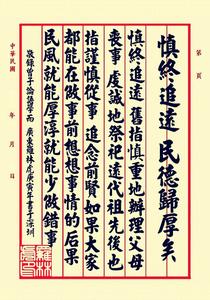 第 頁
慎終追遠 民德歸厚矣
慎終追遠 舊指慎重地辦理父母
喪事 虔誠地祭祀遠代祖先後也
指謹慎從事 追念前賢 如果大家
都能在做事前想想事情的后果
民風就能厚淳就能少做錯事
敬录曾子論語學而 廣東羅林虎庚寅年書于深圳
中華民國 年 月 日